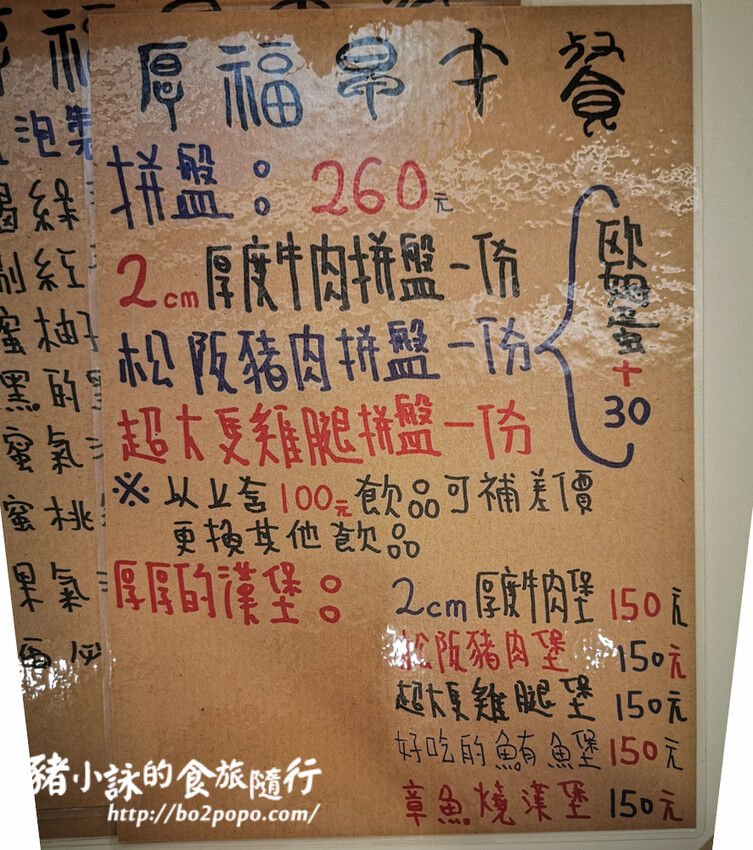 厚福早午餐
拼盤：260元
2cm厚度牛肉拼盤一份
松阪豬肉拼盤一份
超大隻雞腿拼盤一份
欧姆蛋+30
※以上含100元飲品可補差價
更換其他飲品
厚厚的漢堡：
2cm厚度牛肉堡 150元
松阪豬肉堡 150元
超大隻雞腿堡 150元
好吃的鮪魚堡 150元
章魚燒漢堡 150元
福
泡製
綠
紅
蜜柚
黑的
蜜氣
蜜桃
果氣
豬小詠的食旅隨行
http://bo2popo.com/